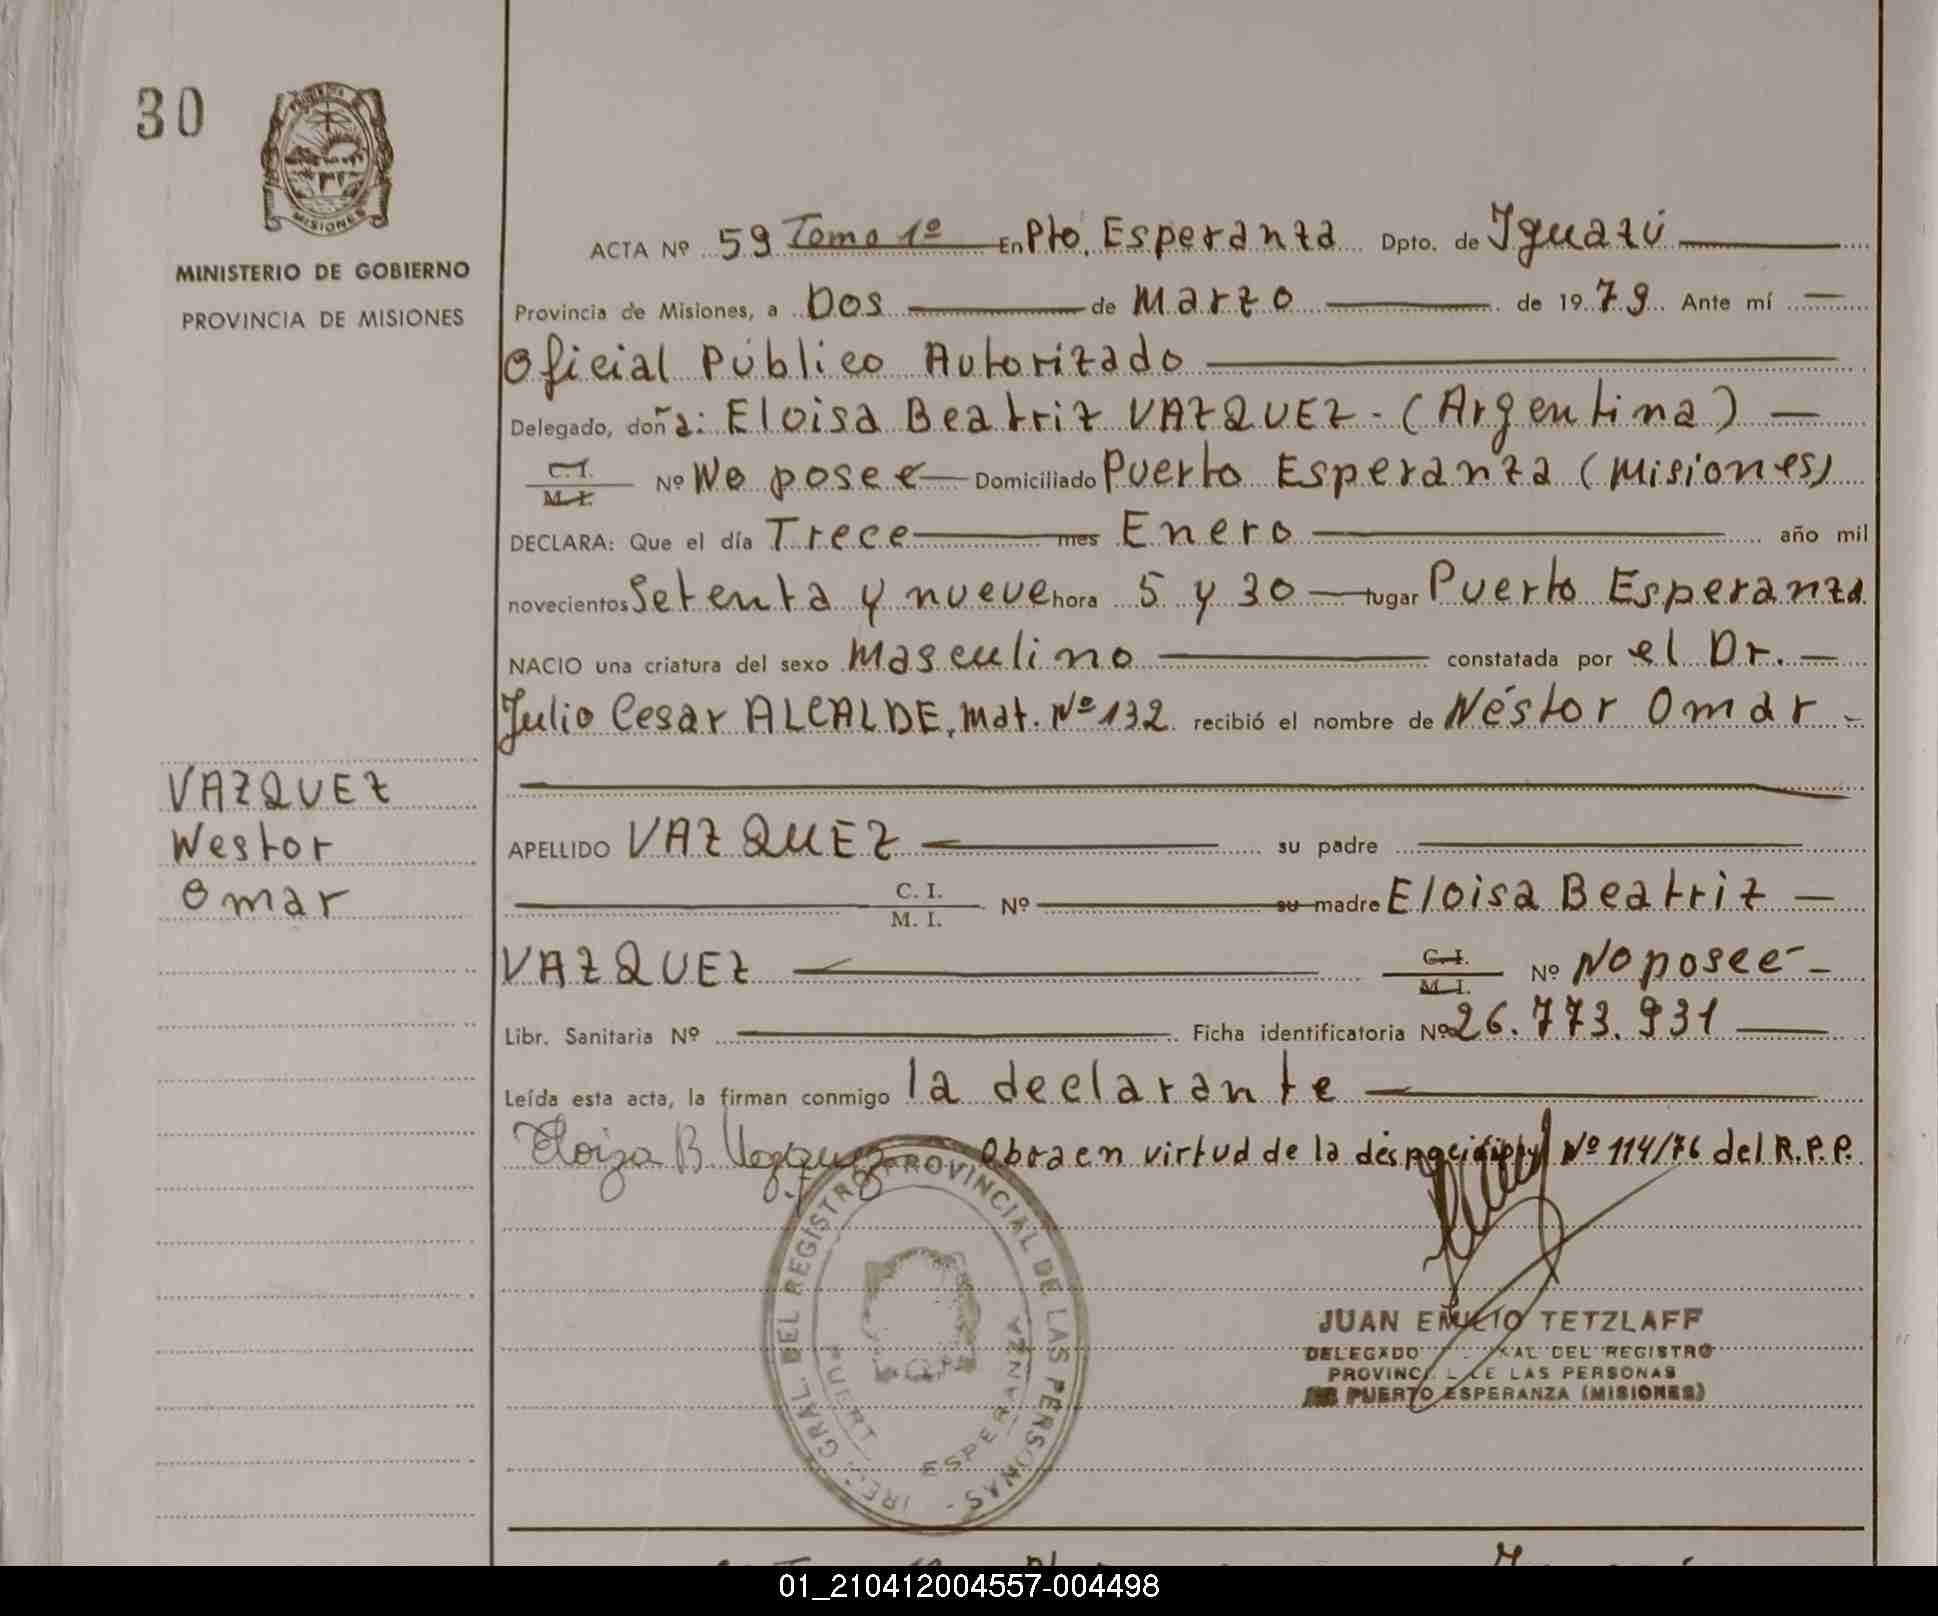 30
MISIONES
MINISTERIO DE GOBIERNO
PROVINCIA DE MISIONES
ACTA Nº 59 Tomo 1º En Pto. Esperanza Dpto. de Iguazú
Provincia de Misiones, a Dos de Marzo de 1979 Ante mí
Oficial Público Autorizado
Delegado, doña: Eloisa Beatriz VAZQUEZ - (Argentina)
C.I. / M.I. Nº No posee Domiciliado Puerto Esperanza (Misiones)
DECLARA: Que el día Trece mes Enero año mil
novecientos Setenta y nueve hora 5 y 30 lugar Puerto Esperanza
NACIO una criatura del sexo Masculino constatada por el Dr.
Julio Cesar ALCALDE, Mat. Nº 132 recibió el nombre de Néstor Omar
VAZQUEZ
Nestor
Omar
APELLIDO VAZQUEZ su padre
C. I. / M. I. Nº su madre Eloisa Beatriz
VAZQUEZ C.I. / M.I. Nº No posee
Libr. Sanitaria Nº Ficha identificatoria Nº 26.773.931
Leída esta acta, la firman conmigo la declarante
Eloiza B. Vazquez Obra en virtud de la disposición Nº 114/76 del R.P.P.
GRAL. DEL REGISTRO PROVINCIAL DE LAS PERSONAS -
ESPERANZA
JUAN EMILIO TETZLAFF
DELEGADO DEL REGISTRO
PROVINCIAL DE LAS PERSONAS
PUERTO ESPERANZA (MISIONES)
01_210412004557-004498